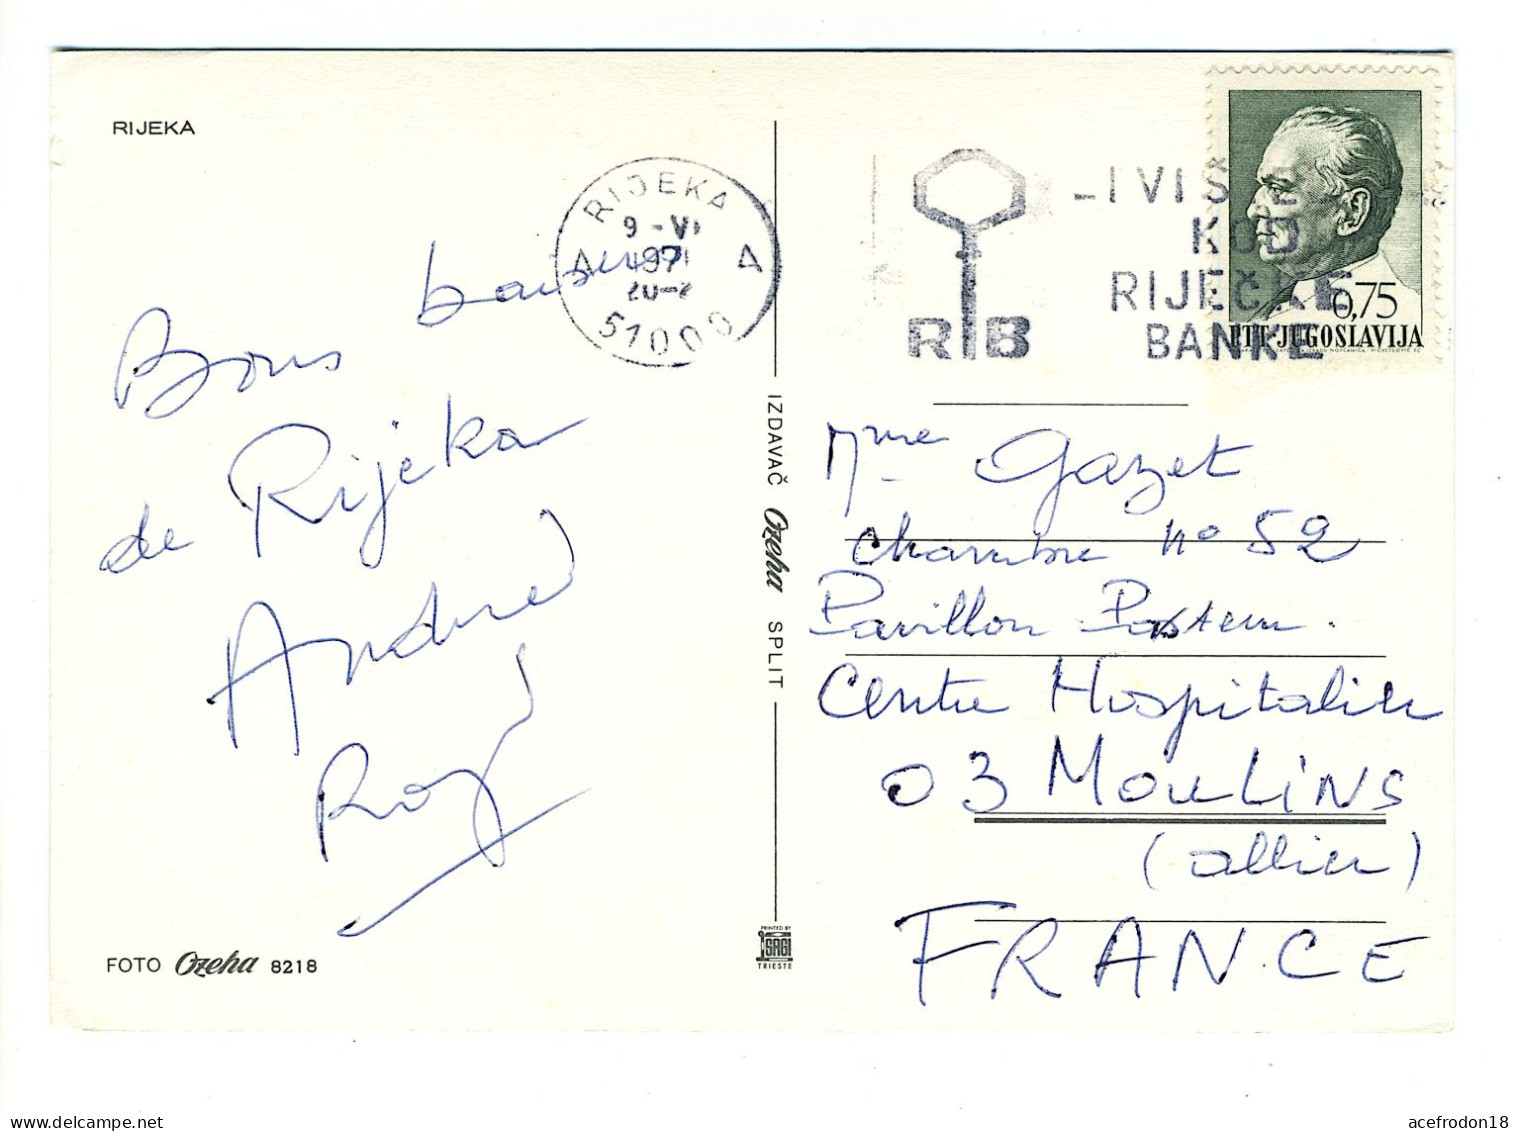 RIJEKA
Bons baisers
de Rijeka
André
Roy
FOTO Ozeha 8218
RIJEKA
9 -VI
1971
20-2
51000
IZDAVAČ Ozeha SPLIT
PRINTED BY
SAGI
TRIESTE
RIB
-I VIŠE
KOD
RIJEČKE
BANKE
0,75
PTT-JUGOSLAVIJA
Mme Gazet
Chambre n° 52
Pavillon Pasteur.
Centre Hospitalier
03 MOULINS
(allier)
FRANCE
acefrodon18
delcampe.net